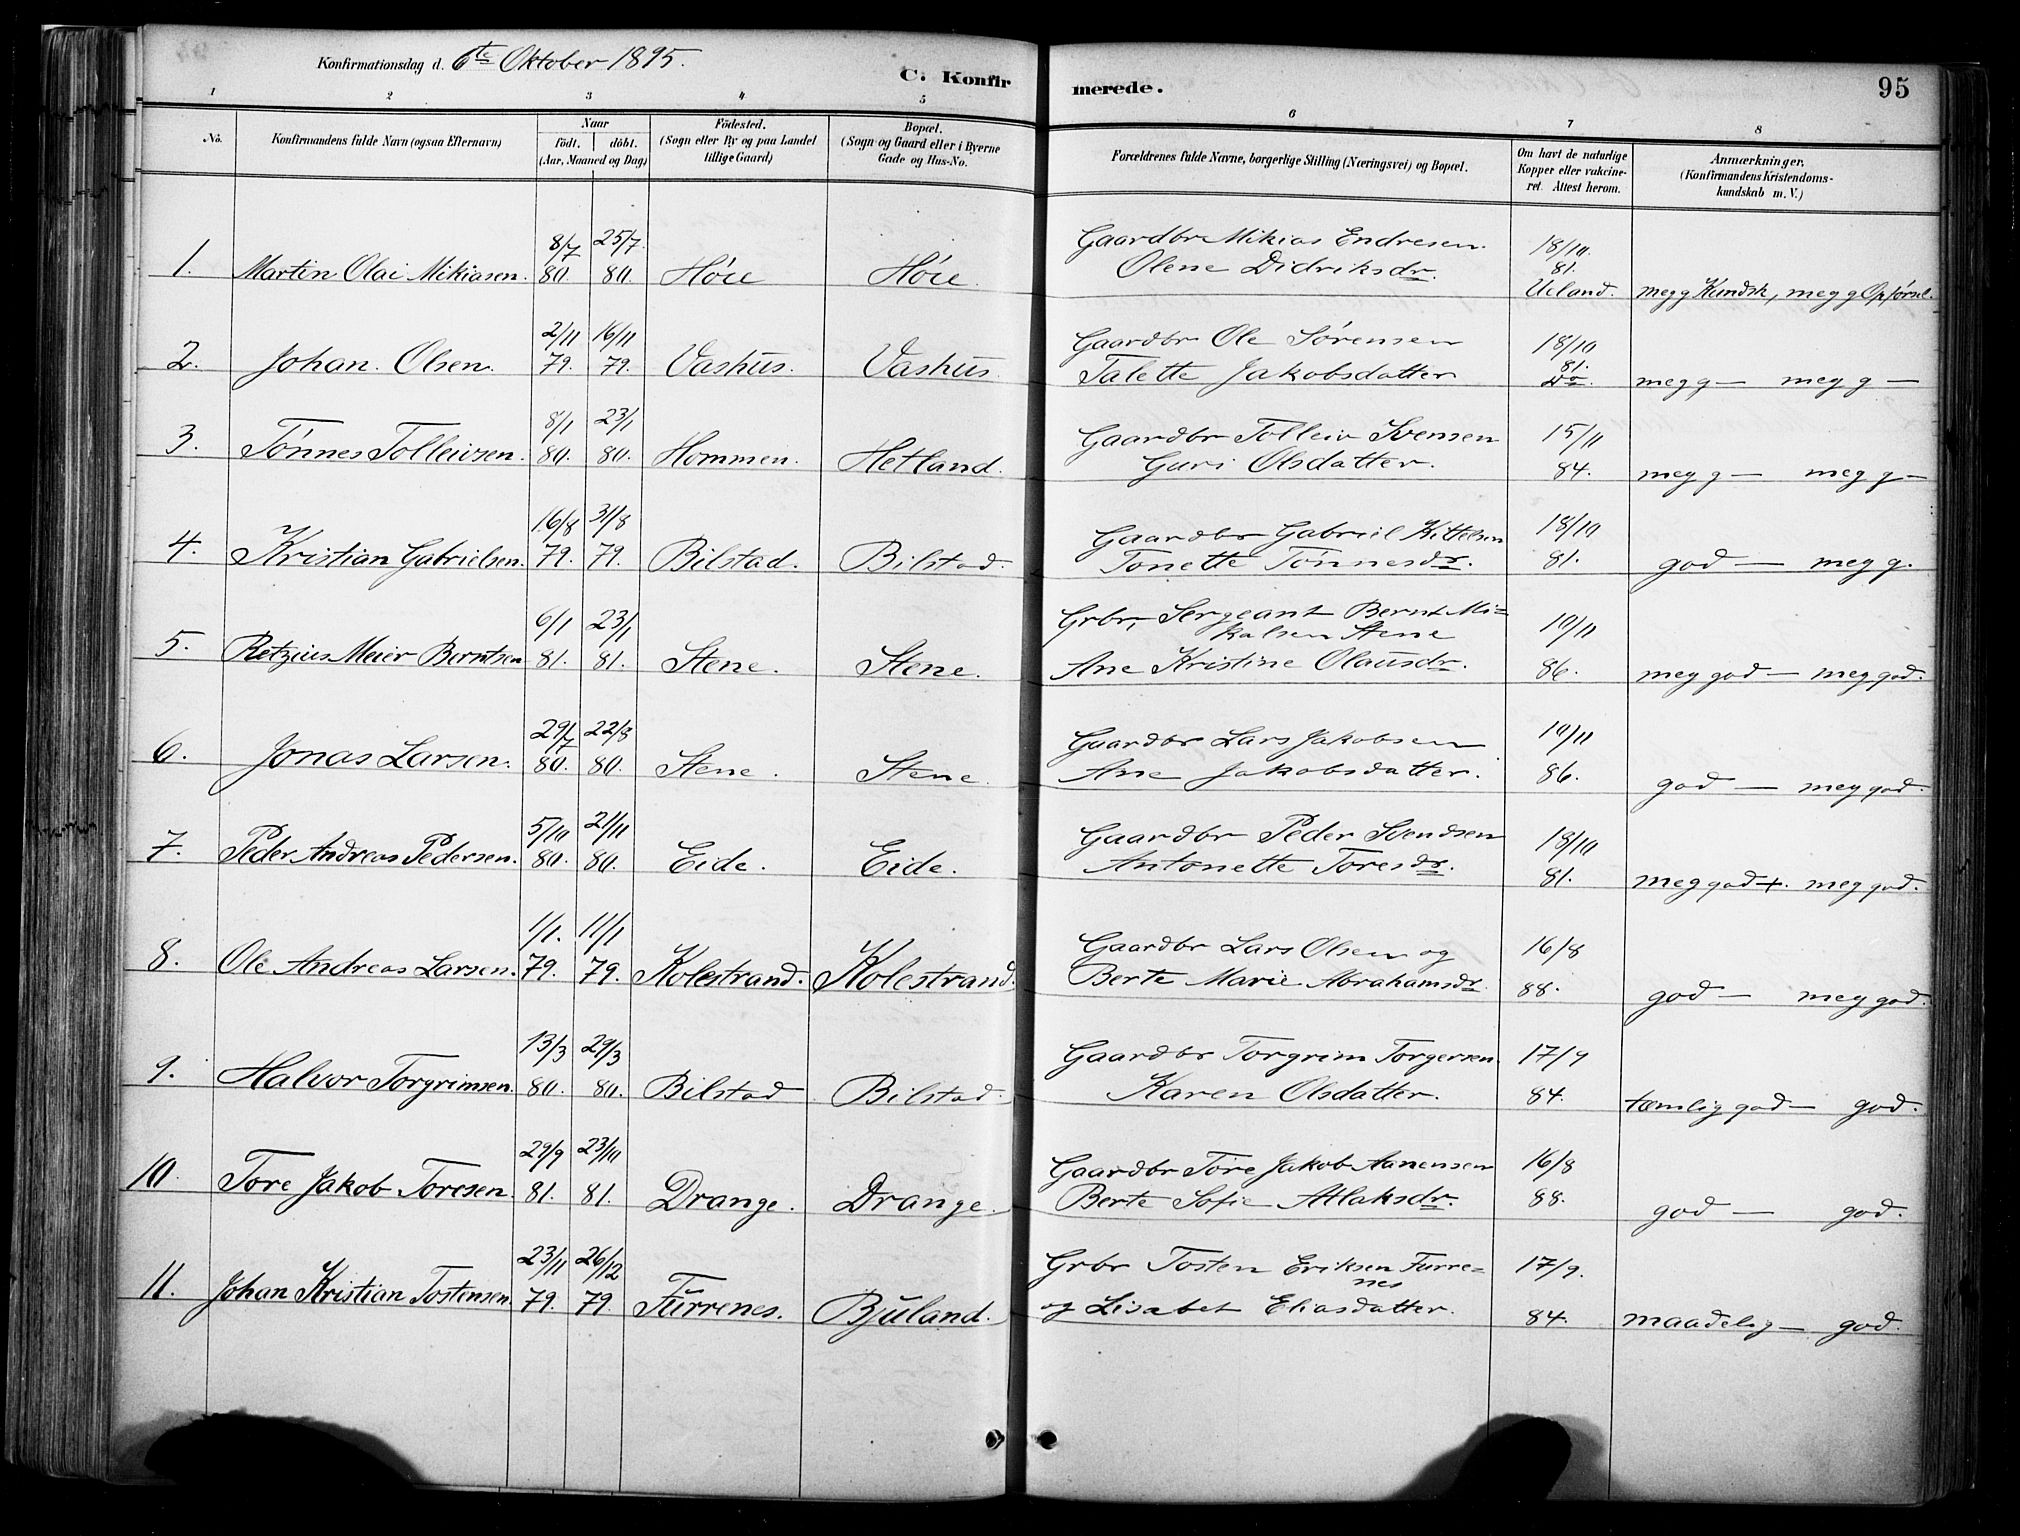 Konfirmationsdag d. 6te Oktober 1895.
C. Konfir merede. 95
1 2 3 4 5 6 7 8
No. Konfirmandens fulde Navn (ogsaa Efternavn) Naar født. døbt. (Aar, Maaned og Dag) Fødested. (Sogn eller By og paa Landet tillige Gaard) Bopæl. (Sogn og Gaard eller i Byerne Gade og Hus-No. Forældrenes fulde Navne, borgerlige Stilling (Næringsvei) og Bopæl. Om havt de naturlige Kopper eller vakcineret. Attest herom. Anmærkninger. (Konfirmandens Kristendomskundskab m. V.)
8/7 25/7. Gaardbr Mikias Endresen. 18/10.
1. Martin Olai Mikiasen. 80. 80. Høie Høie. Olene Didriksdr. 81.
Ueland. meg g Kundsk, meg g Opførsel.
2/11 16/11 Gaardbr Ole Sørensen 18/10
2. Johan. Olsen. 79. 79. Vashus. Vashus. Talette Jakobsdatter 81.
Do. meg g — meg g —
8/1 23/1 Gaardbr Tolleiv Svensen 15/11
3. Tønnes Tolleivsen. 80. 80. Hommen. Hetland. Guri Olsdatter. 84. meg g — meg g —
16/8 31/8 Gaardbr Gabriel Kittelsen 18/10
4. Kristian Gabrielsen. 79. 79. Bilstad. Bilstad. Tonette Tønnesdr. 81. god — meg g.
6/1 23/1 Grbr, Sergeant Bernt Mi=
kalsen Stene 10/11
5. Retzius Meier Berntsen 81. 81. Stene. Stene. Ane Kristine Olausdr. 86. meg god — meg god.
29/7 22/8 Gaardbr Lars Jakobsen 10/11
6. Jonas Larsen. 80. 80. Stene. Stene. Ane Jakobsdatter. 86. god — meg god.
5/10 21/11 Gaardbr Peder Svendsen 18/10
7. Peder Andreas Pedersen. 80. 80. Eide. Eide. Antonette Toresdr. 81. meg god +. meg god.
1/1. 11/1 Gaardbr Lars Olsen og 16/8
8. Ole Andreas Larsen. 79. 79. Kolestrand. Kolestrand. Berte Marie Abrahamsdr. 88. god — meg god.
13/3 29/3 Gaardbr Torgrim Torgersen. 17/9
9. Halvor Torgrimsen. 80. 80. Bilstad Bilstad. Karen Olsdatter. 84. temlig god — god.
29/9 23/10 Gaardbr Tore Jakob Aanensen 16/8
10. Tore Jakob Toresen. 81. 81. Drange. Drange. Berte Sofie Atlaksdr. 88. god — god.
23/11 26/12 Grbr Tosten Eriksen Furre= 17/9.
nes
11. Johan Kristian Tostensen. 79. 79. Furrenes. Bjuland. og Lisabet Eliasdatter. 84. maadelig — god.